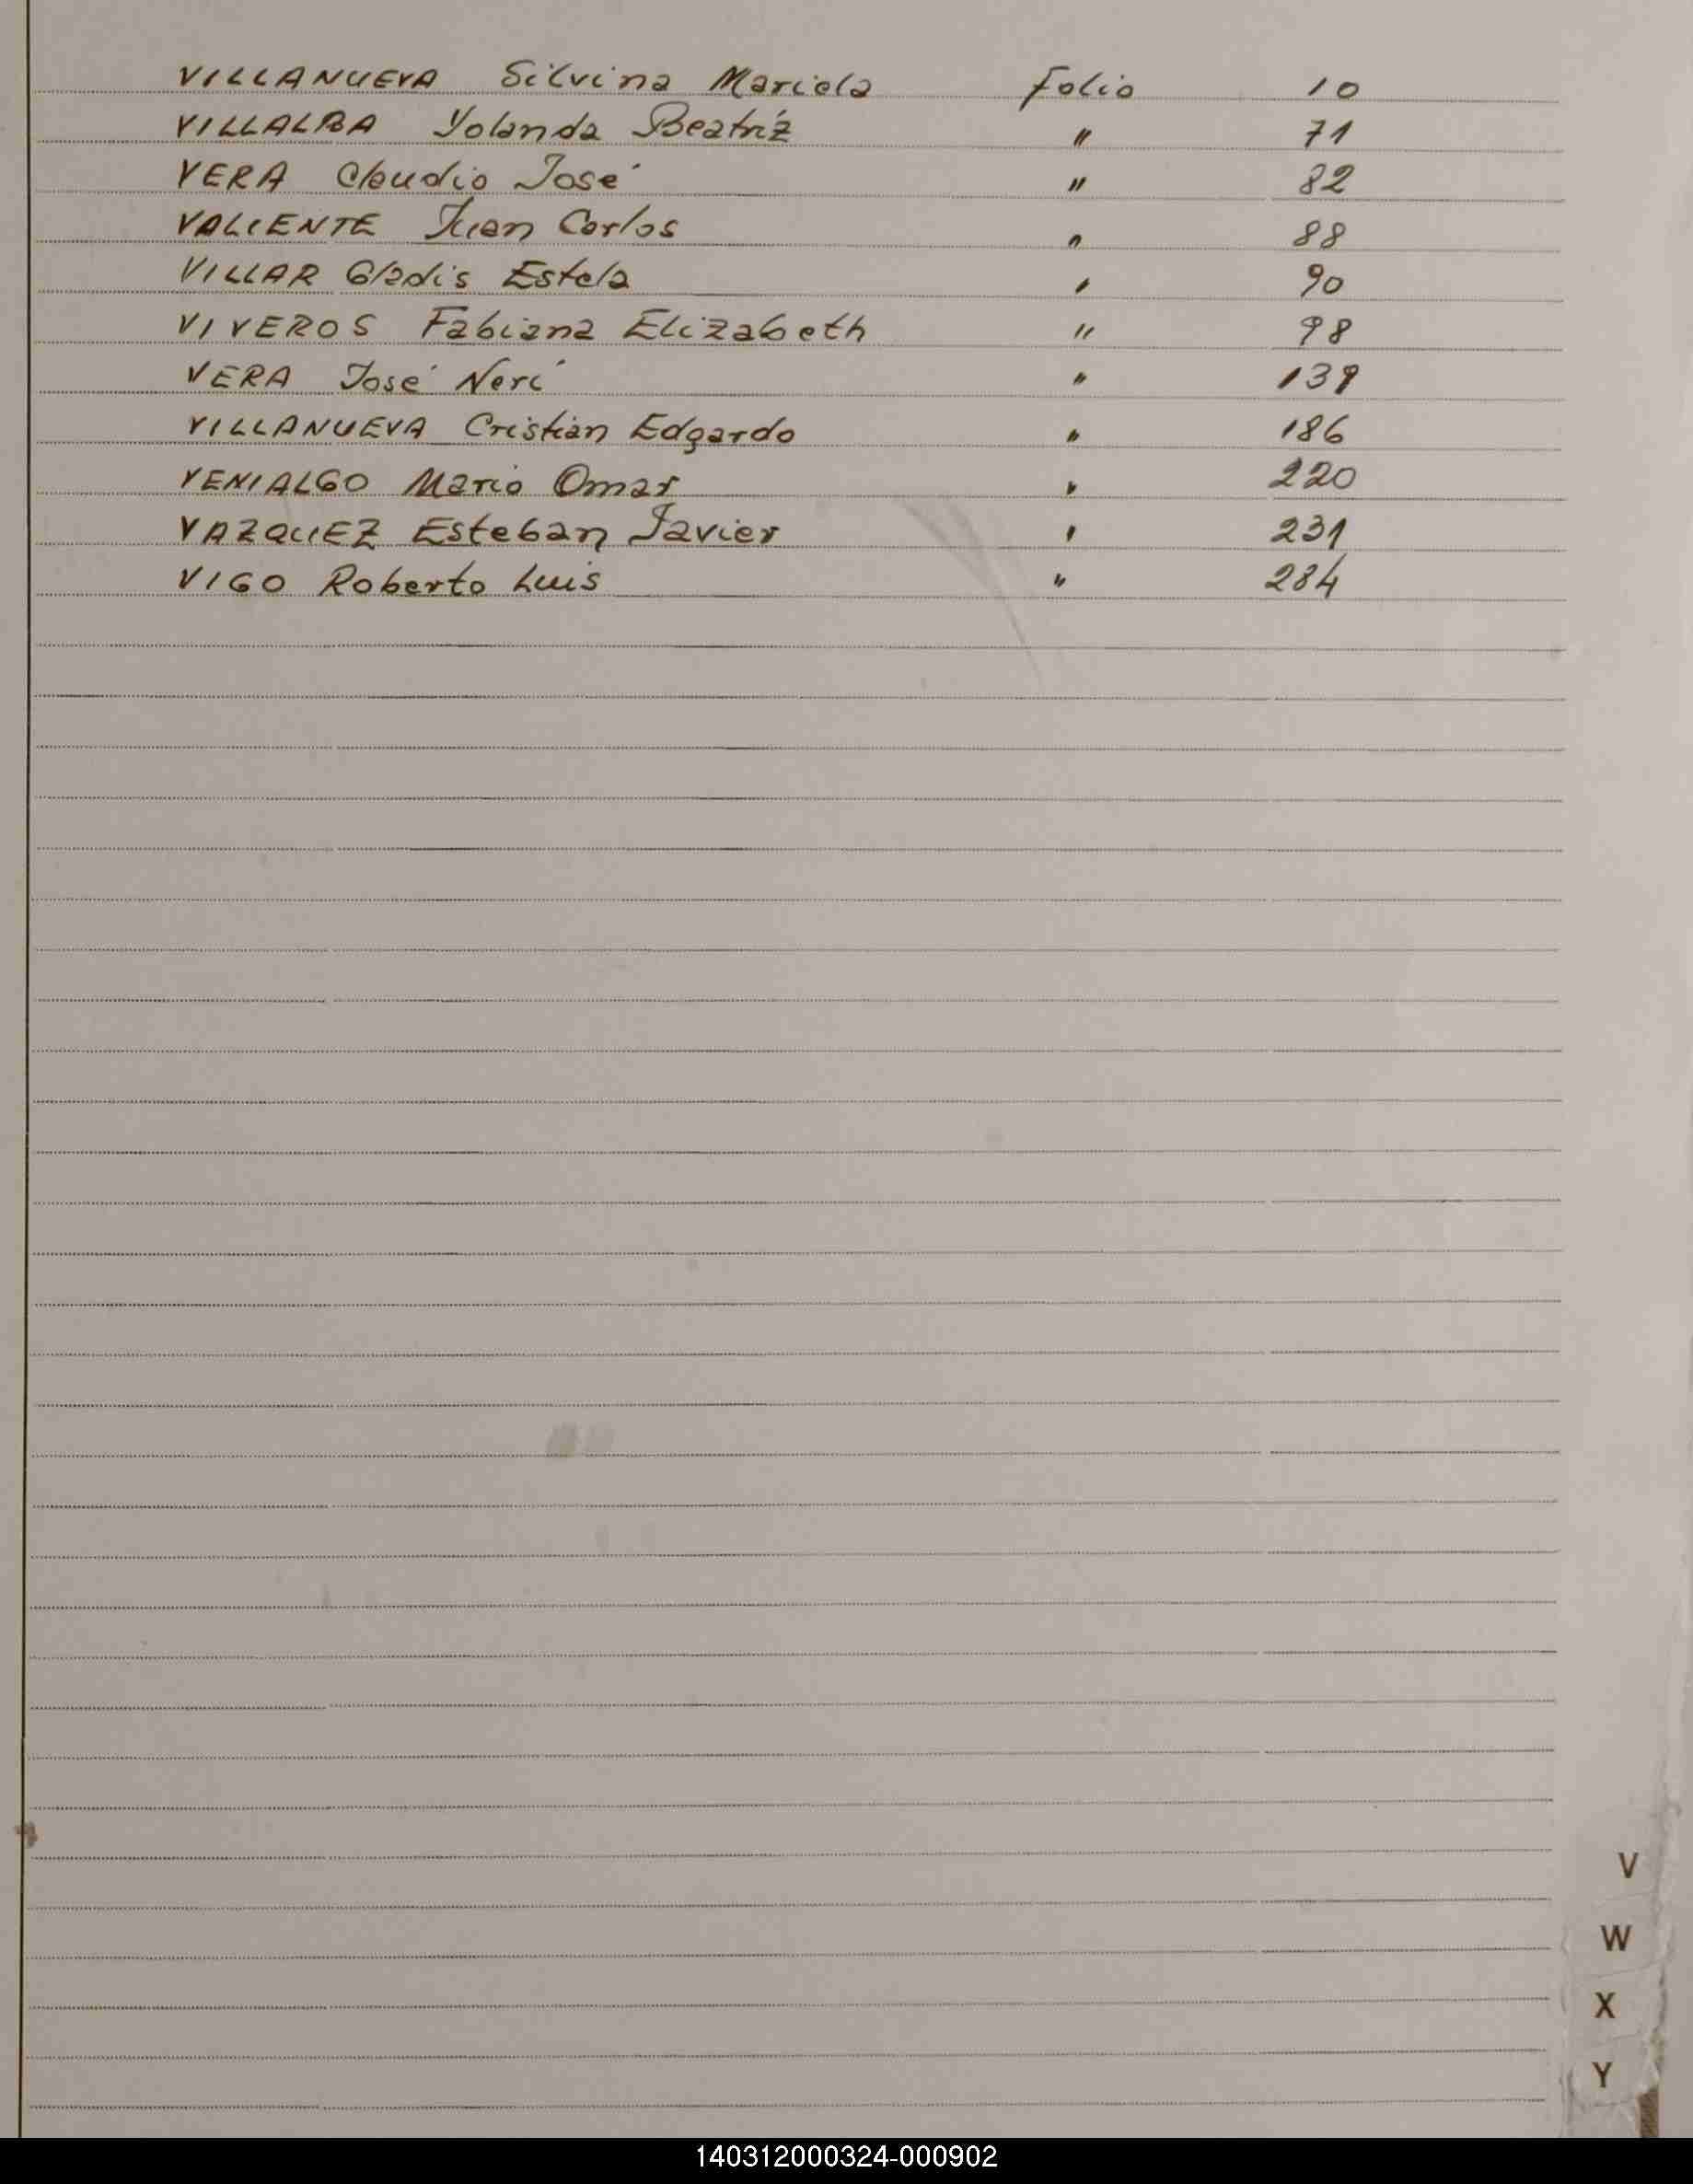 VILLANUEVA Silvina Mariela Folio 10
VILLALBA Yolanda Beatríz " 71
VERA Claudio José " 82
VALIENTE Juan Carlos " 88
VILLAR Gladis Estela " 90
VIVEROS Fabiana Elizabeth " 98
VERA José Nerí " 139
VILLANUEVA Cristian Edgardo " 186
VENIALGO Mario Omar " 220
VAZQUEZ Esteban Javier " 231
VIGO Roberto Luis " 284
V
W
X
Y
140312000324-000902